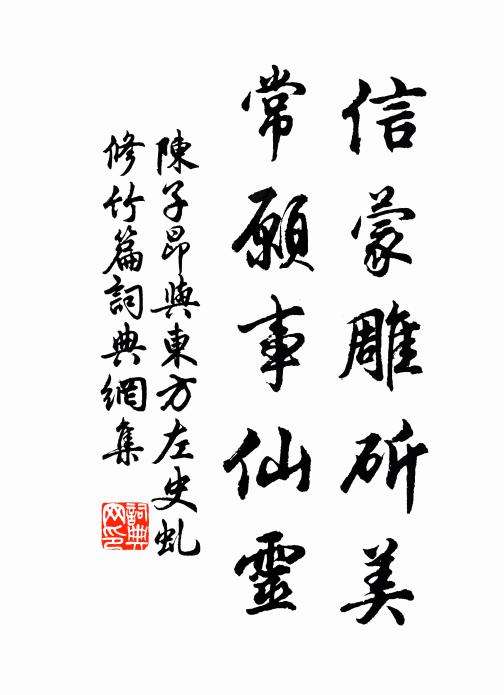 信蒙雕斫美
常願事仙靈
陳子昂與東方左史虬
修竹篇詞典網集
詞典网印